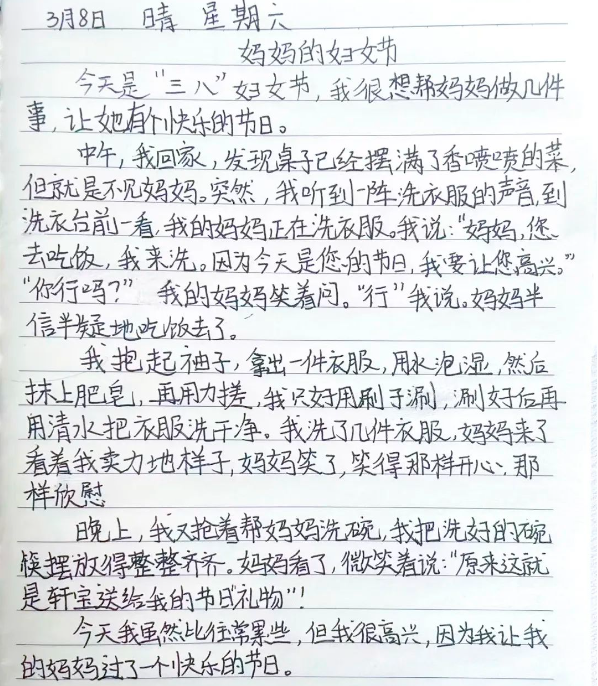 3月8日 晴 星期六
妈妈的妇女节
今天是"三八"妇女节,我很想帮妈妈做几件
事,让她有个快乐的节日。
中午,我回家,发现桌子已经摆满了香喷喷的菜,
但就是不见妈妈。突然,我听到一阵洗衣服的声音,到
洗衣台前一看,我的妈妈正在洗衣服。我说:"妈妈,您
去吃饭,我来洗。因为今天是您的节日,我要让您高兴。"
"你行吗?" 我的妈妈笑着问。"行"我说。妈妈半
信半疑地吃饭去了。
我抱起袖子,拿出一件衣服,用水泡湿,然后
抹上肥皂,再用力搓,我只好用刷子涮,涮好后再
用清水把衣服洗干净。我洗了几件衣服,妈妈来了
看着我卖力地样子,妈妈笑了,笑得那样开心、那
样欣慰
晚上,我又抢着帮妈妈洗碗,我把洗好的碗
筷摆放得整整齐齐。妈妈看了,微笑着说:"原来这就
是轩宝送给我的节日礼物"!
今天我虽然比往常累些,但我很高兴,因为我让我
的妈妈过了一个快乐的节日。